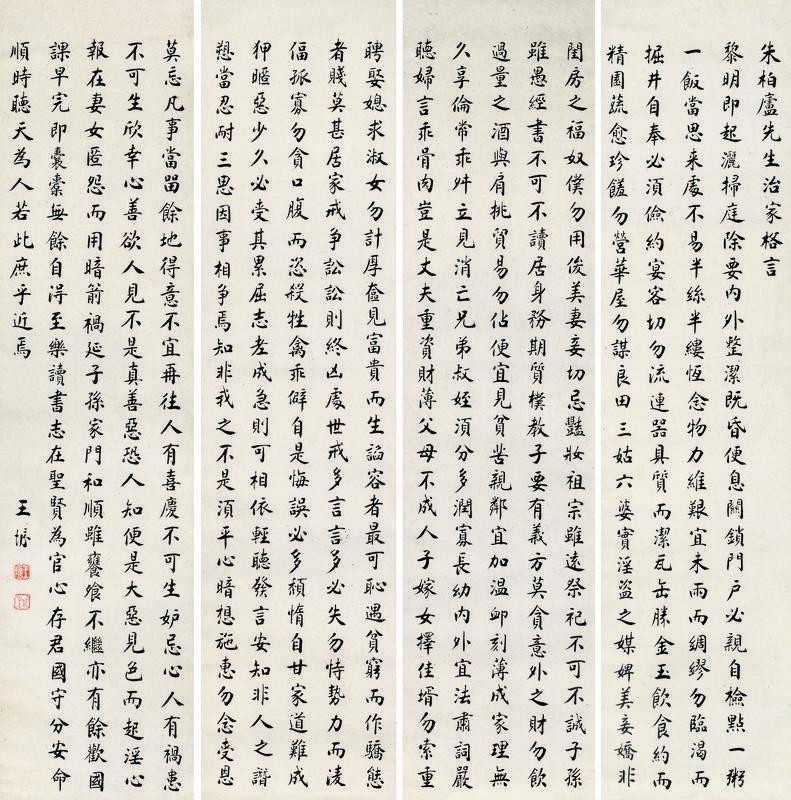 朱柏廬先生治家格言
黎明即起灑掃庭除要內外整潔既昏便息關鎖門戶必親自檢點一粥
一飯當思來處不易半絲半縷恆念物力維艱宜未雨而綢繆勿臨渴而
掘井自奉必須儉約宴客切勿流連器具質而潔瓦缶勝金玉飲食約而
精園蔬愈珍饈勿營華屋勿謀良田三姑六婆實淫盜之媒婢美妾嬌非
閨房之福奴僕勿用俊美妻妾切忌豔妝祖宗雖遠祭祀不可不誠子孫
雖愚經書不可不讀居身務期質樸教子要有義方莫貪意外之財勿飲
過量之酒與肩挑貿易勿佔便宜見貧苦親鄰宜加溫卹刻薄成家理無
久享倫常乖舛立見消亡兄弟叔姪須分多潤寡長幼內外宜法肅詞嚴
聽婦言乖骨肉豈是丈夫重資財薄父母不成人子嫁女擇佳壻勿索重
聘娶媳求淑女勿計厚奩見富貴而生諂容者最可恥遇貧窮而作驕態
者賤莫甚居家戒爭訟訟則終凶處世戒多言言多必失勿恃勢力而凌
偪孤寡勿貪口腹而恣殺牲禽乖僻自是悔誤必多頹惰自甘家道難成
狎暱惡少久必受其累屈志老成急則可相依輕聽發言安知非人之譖
愬當忍耐三思因事相爭焉知非我之不是須平心暗想施惠勿念受恩
莫忘凡事當留餘地得意不宜再往人有喜慶不可生妒忌心人有禍患
不可生欣幸心善欲人見不是真善惡恐人知便是大惡見色而起淫心
報在妻女匿怨而用暗箭禍延子孫家門和順雖饔飧不繼亦有餘歡國
課早完即囊橐無餘自得至樂讀書志在聖賢為官心存君國守分安命
順時聽天為人若此庶乎近焉
王